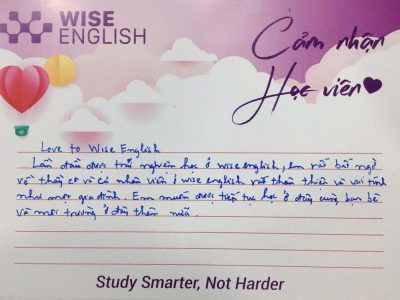 WISE
ENGLISH
Cảm nhận
Học viên
Love to Wise English
Lần đầu được trải nghiệm học ở wise english, em rất bất ngờ
về thầy cô và cả nhân viên ở wise english rất thân thiện và vui tính
như một gia đình. Em muốn được tiếp tục học ở đây cùng bạn bè
và môi trường ở đây thêm nữa.
Study Smarter, Not Harder